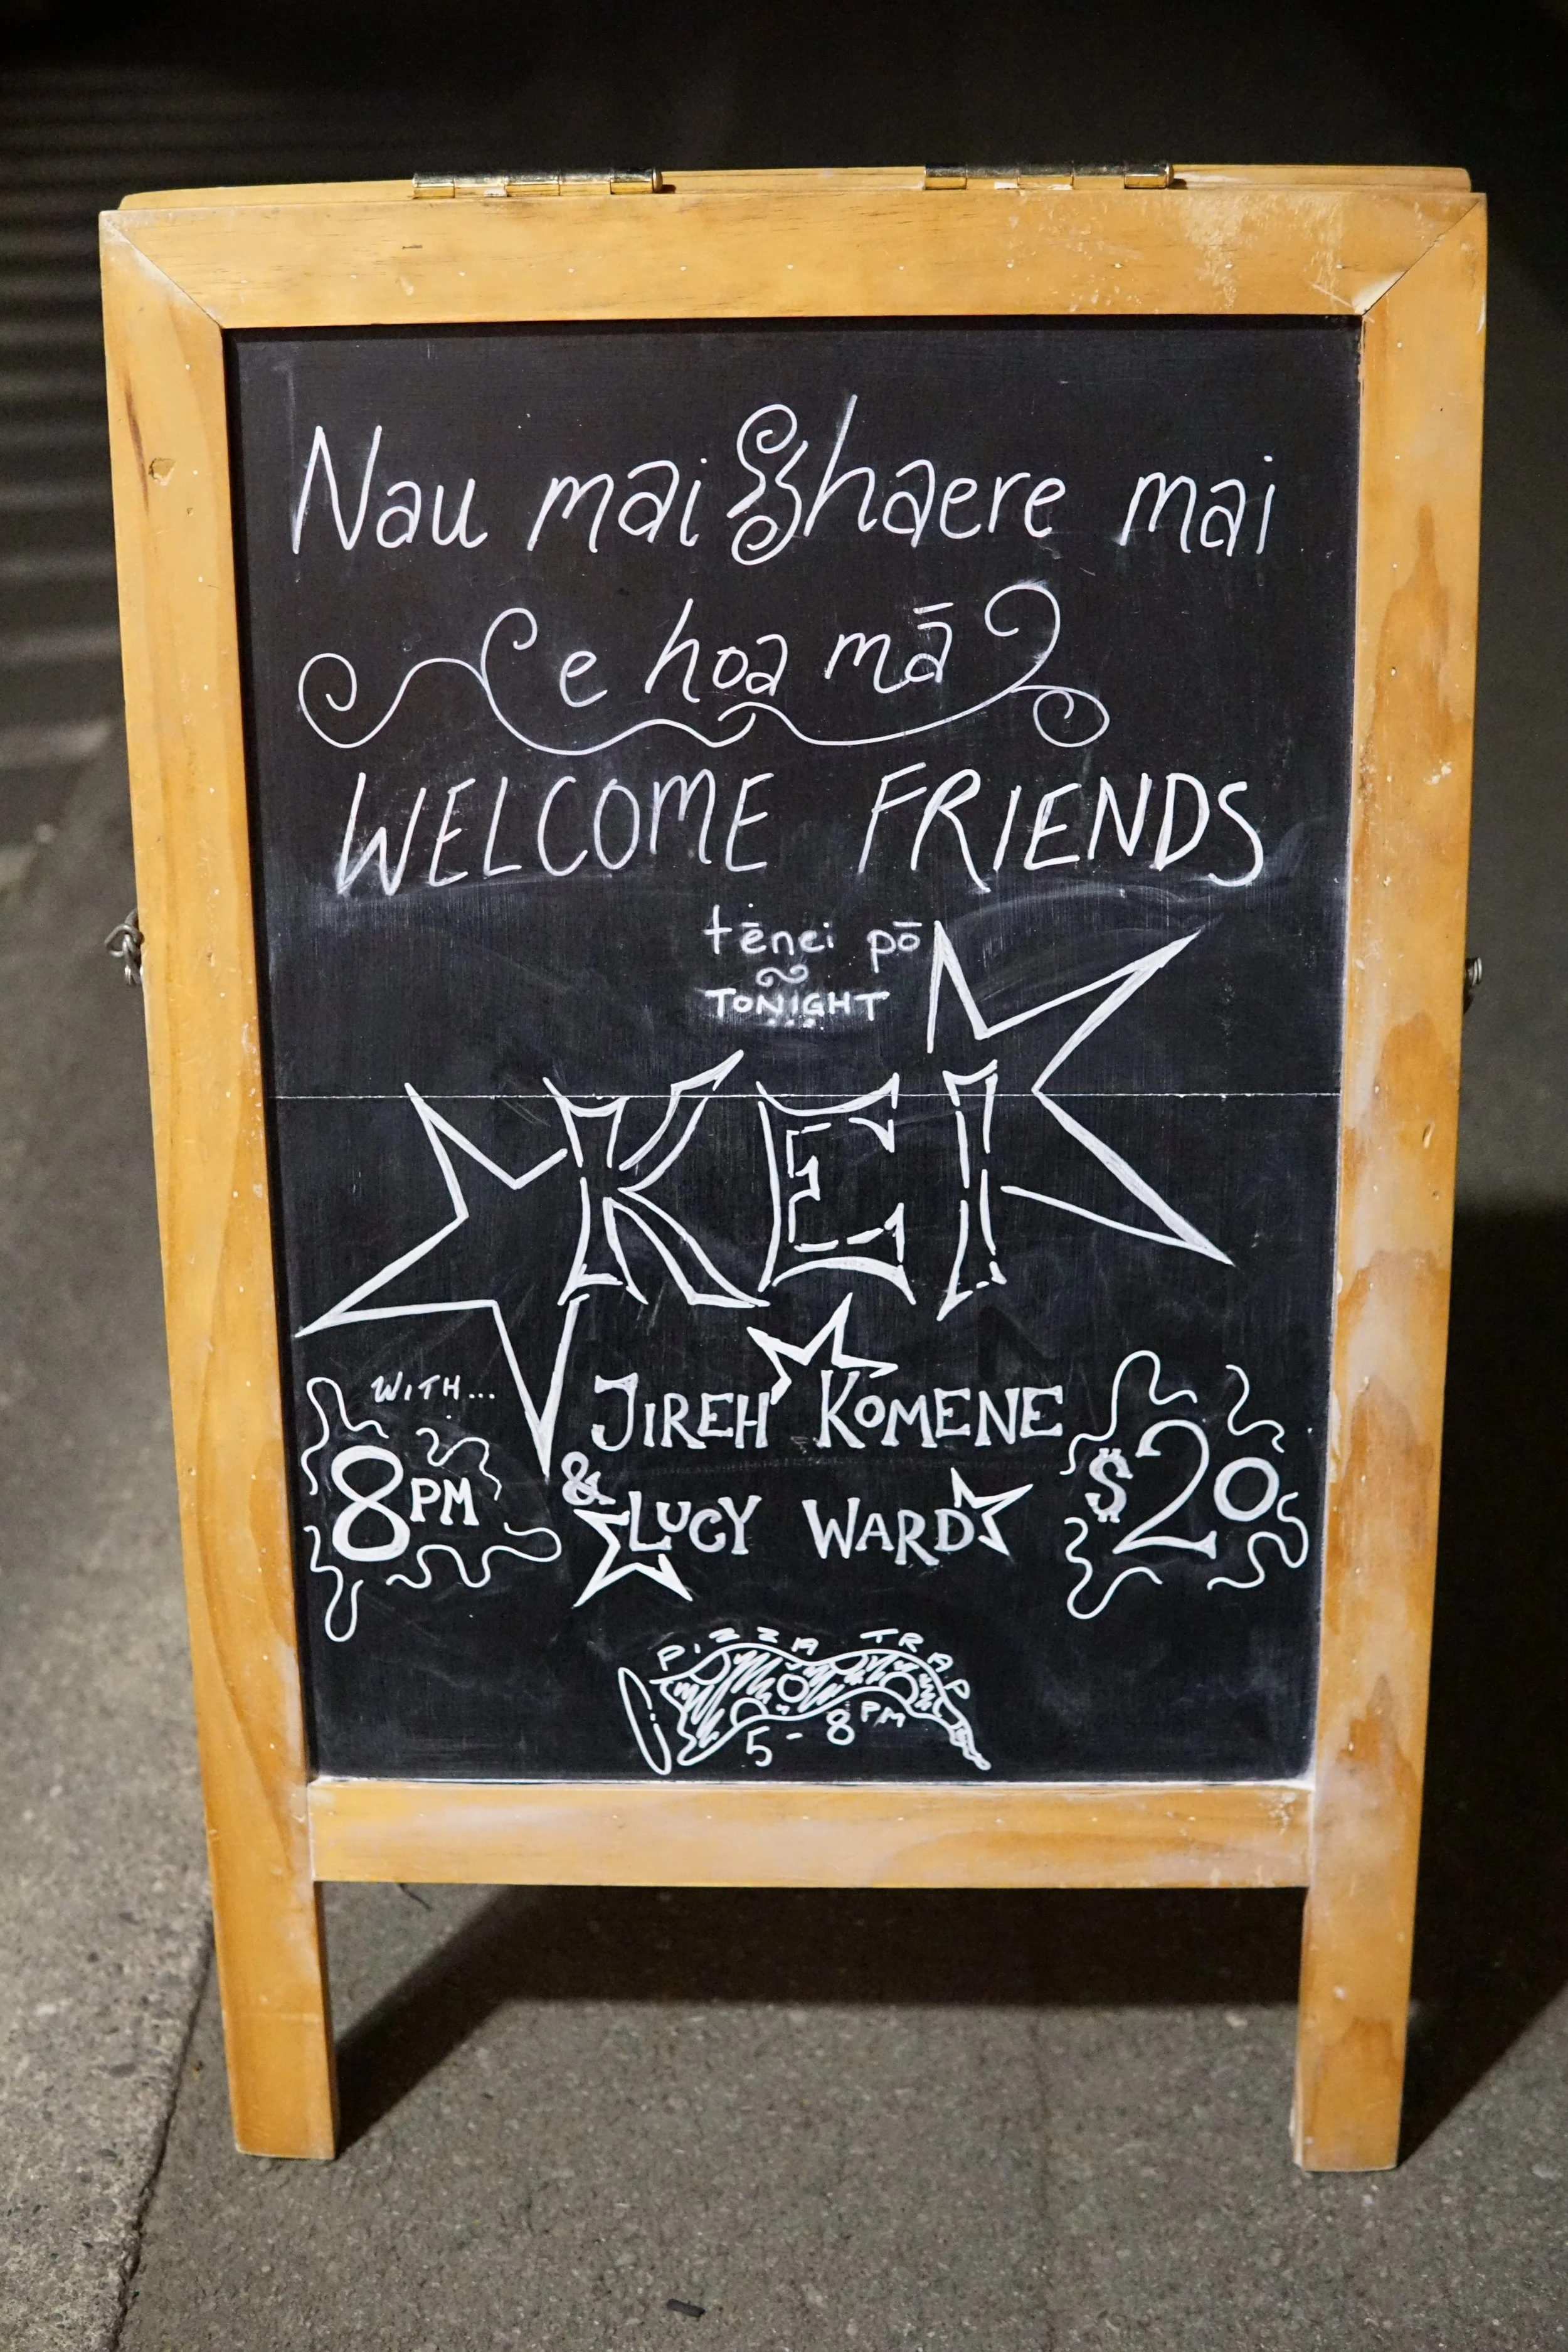 Nau mai & haere mai
e hoa mā
WELCOME FRIENDS
tēnei pō
TONIGHT
KEI
WITH...
JIREH KOMENE
8PM
& LUCY WARD
$20
PIZZA TRAP
5-8PM